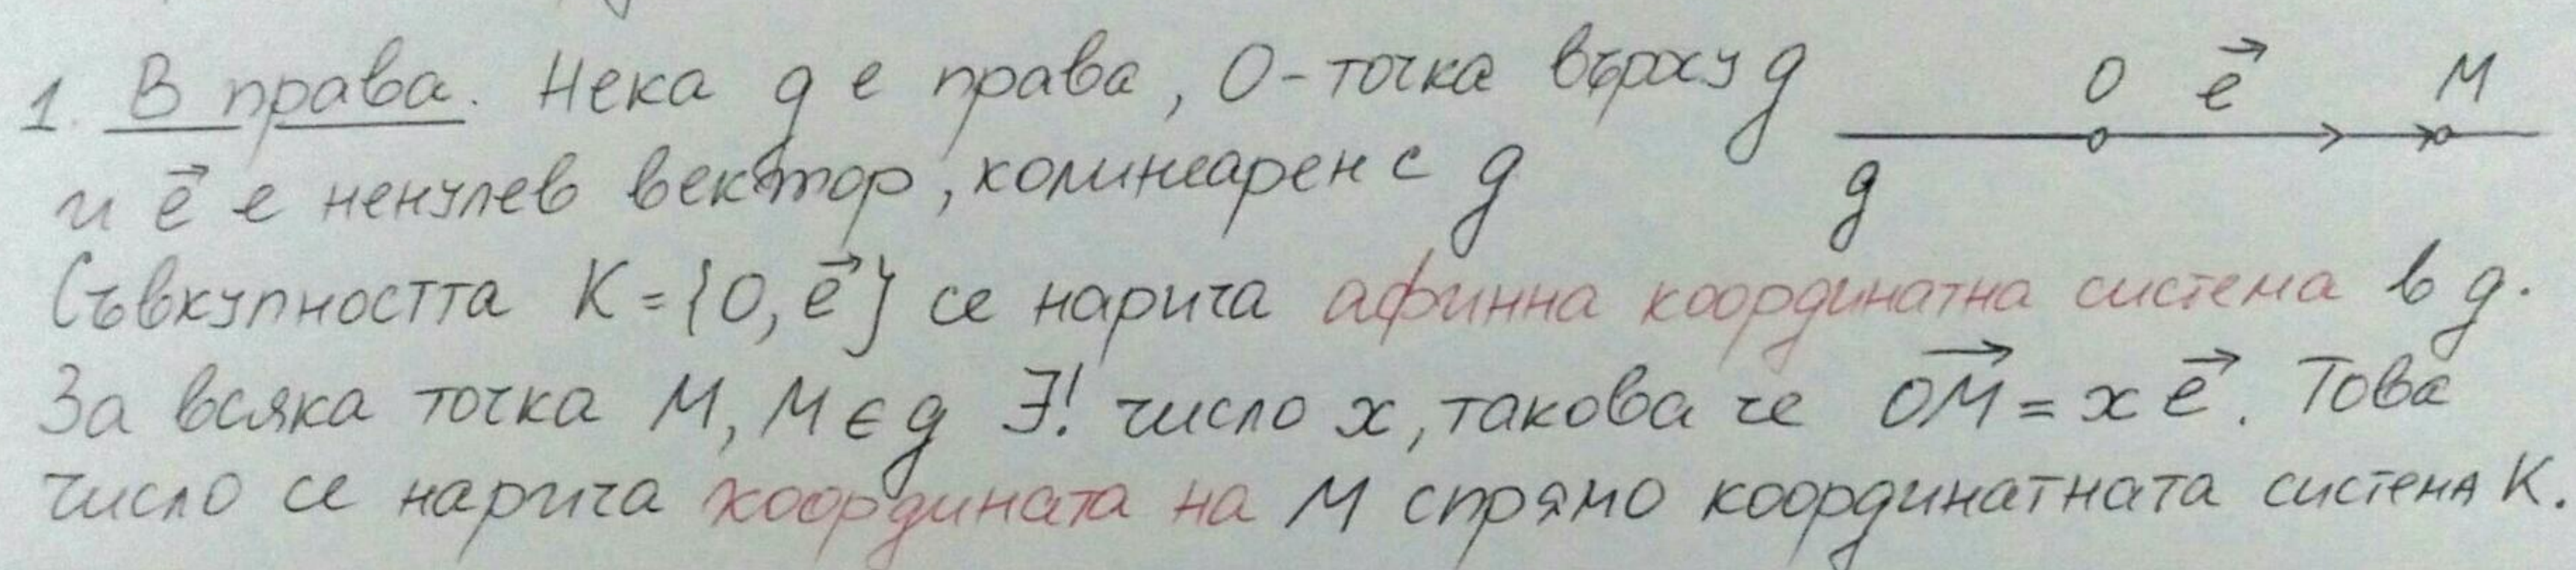 1. В права. Нека g е права, O-точка върху g
O e⃗ M
g
и e⃗ е ненулев вектор, колинеарен с g
Съвкупността K={O, e⃗} се нарича афинна координатна система в g.
За всяка точка M, M∈g ∃! число x, такова че OM⃗ = x e⃗. Това
число се нарича координата на M спрямо координатната система K.